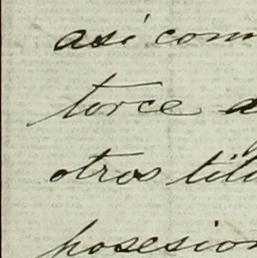 asi com
torce a
otros titu
posesion